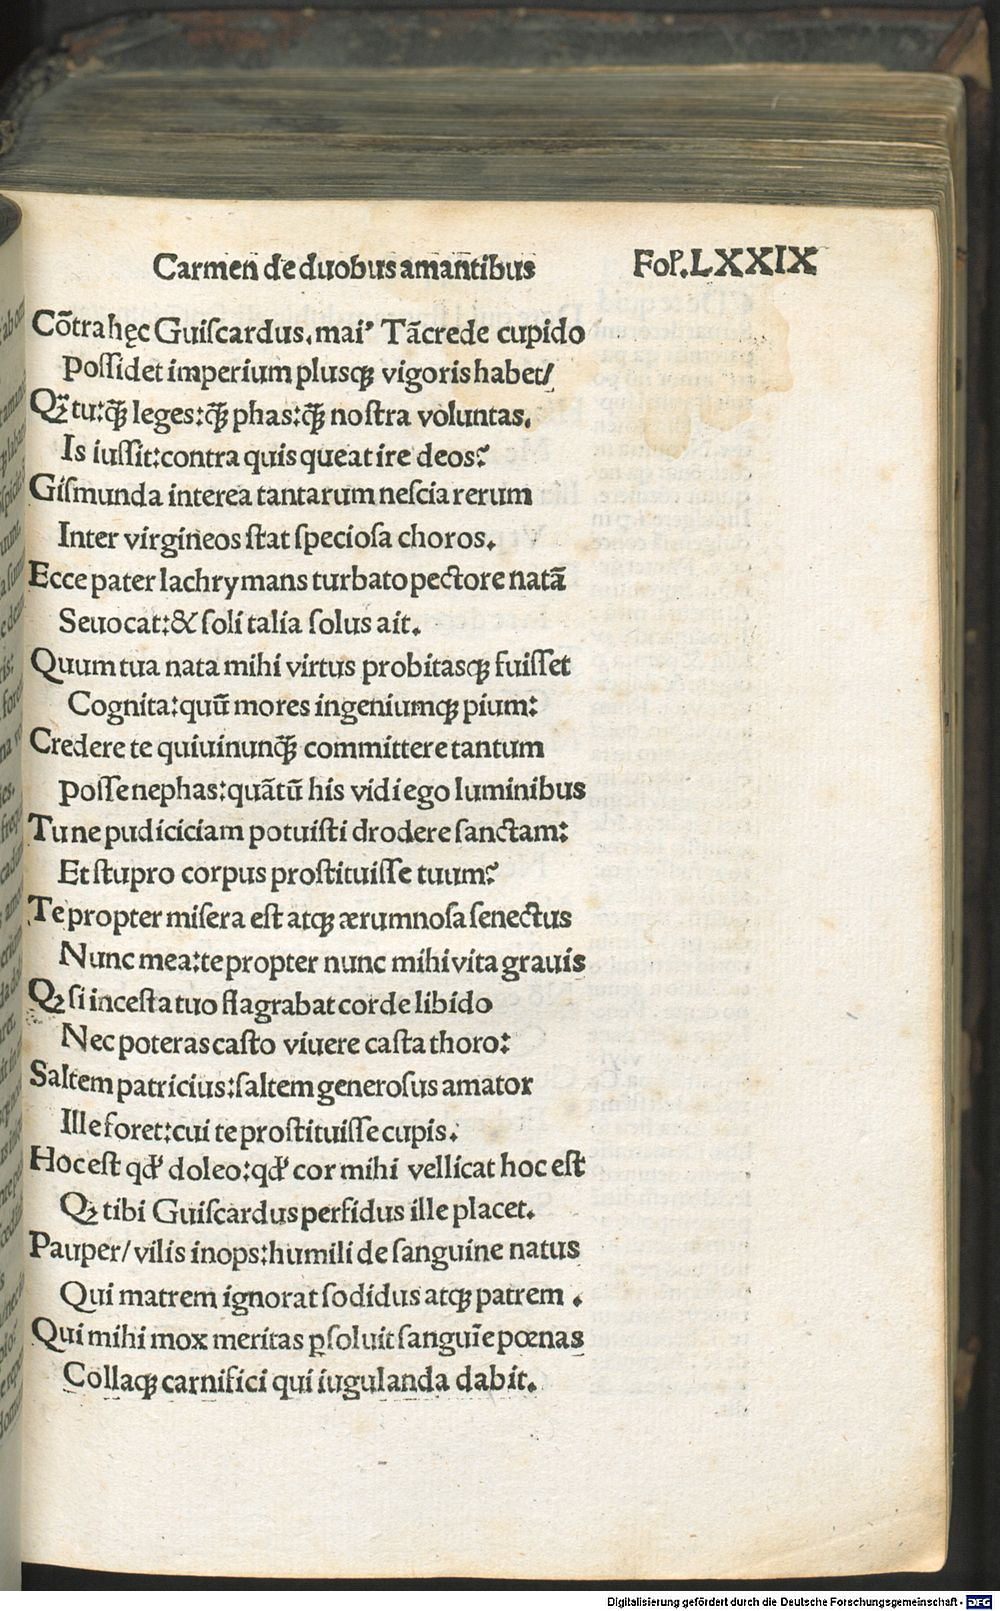 Carmen de duobus amantibus Fol.LXXIX
Cõtra hęc Guiſcardus, maiꝰ Tãcrede cupido
Poſſidet imperium pluſqꝫ vigoris habet/
Qꝫ tu:qꝫ̃ leges:qꝫ̃ phas:qꝫ̃ noſtra voluntas,
Is iuſſit:contra quis queat ire deos?
Giſmunda interea tantarum neſcia rerum
Inter virgineos ſtat ſpecioſa choros.
Ecce pater lachrymans turbato pectore natã
Seuocat:& ſoli talia ſolus ait.
Quum tua nata mihi virtus probitasqꝫ fuiſſet
Cognita:quũ mores ingeniumqꝫ pium:
Credere te quiuinunqꝫ̃ committere tantum
Poſſe nephas:quãtũ his vidi ego luminibus
Tu ne pudiciciam potuiſti drodere ſanctam:
Et ſtupro corpus proſtituiſſe tuum?
Te propter miſera eſt atqꝫ ærumnoſa ſenectus
Nunc mea:te propter nunc mihi vita grauis
Qꝫ ſi inceſta tuo flagrabat corde libido
Nec poteras caſto viuere caſta thoro:
Saltem patricius:ſaltem generoſus amator
Ille foret:cui te proſtituiſſe cupis.
Hoc eſt qđ doleo:qđ cor mihi vellicat hoc eſt
Qꝫ tibi Guiſcardus perfidus ille placet.
Pauper/ vilis inops:humili de ſanguine natus
Qui matrem ignorat ſodidus atqꝫ patrem .
Qui mihi mox meritas ꝑſoluit ſanguĩe pœnas
Collaqꝫ carnifici qui iugulanda dabit.
Digitalisierung gefördert durch die Deutsche Forschungsgemeinschaft - DFG